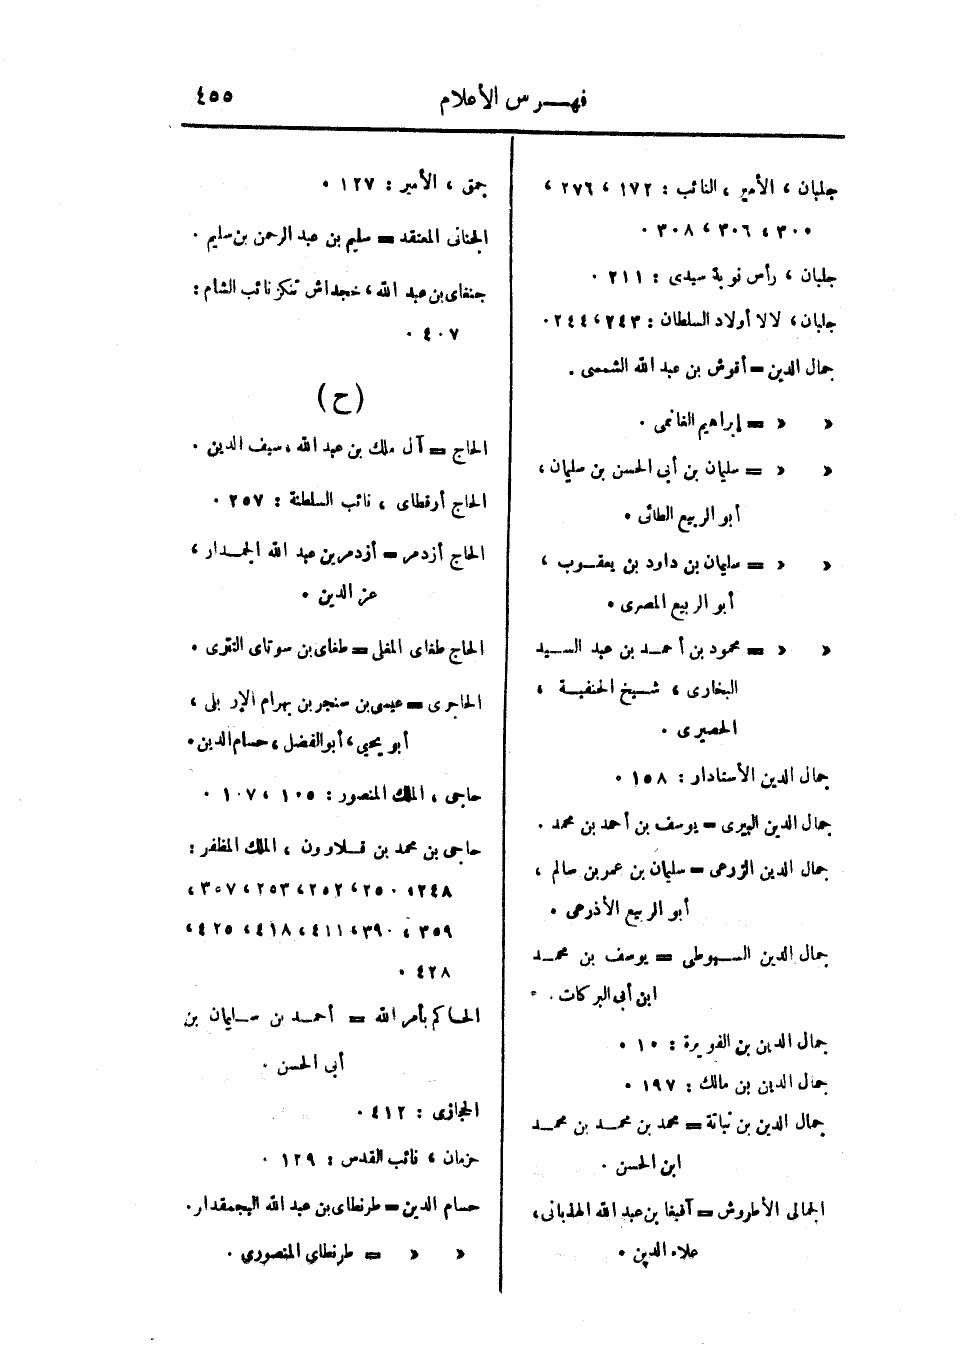 فهرس الأعلام ٤٥٥
جلبان ، الأمير ، النائب : ١٧٢ ، ٢٧٦ ،
٣٠٥ ، ٣٠٦ ، ٣٠٨ .
جلبان ، رأس نوبة سيدى : ٢١١ .
جلبان ، لالا أولاد السلطان : ٢٤٣ ، ٢٤٤ .
جمال الدين = أقوش بن عبد الله الشمسى .
» » = إبراهيم الغانمى .
» » = سليمان بن أبى الحسن بن سليمان ،
أبو الربيع الطائى .
» » = سليمان بن داود بن يعقوب ،
أبو الربيع المصرى .
» » = محمود بن أحمد بن عبد السيد
البخارى ، شيخ الحنفية ،
الحصيرى .
جمال الدين الأستادار : ١٥٨ .
جمال الدين البيرى = يوسف بن أحمد بن محمد .
جمال الدين الزرعى = سليمان بن عمر بن سالم ،
أبو الربيع الأذرعى .
جمال الدين السيوطى = يوسف بن محمد
ابن أبى البركات .
جمال الدين بن الفويرة : ١٠ .
جمال الدين بن مالك : ١٩٧ .
جمال الدين بن نباتة = محمد بن محمد بن محمد
ابن الحسن .
الجمالى الأطروش = آقبغا بن عبد الله الهذبانى ،
علاء الدين .
جمق ، الأمير : ١٢٧ .
الجنانى المعتقد = سليم بن عبد الرحمن بن سليم .
جنغاى بن عبد الله ، خجداش تنكز نائب الشام :
٤٠٧ .
(ح)
الحاج = آل ملك بن عبد الله ، سيف الدين .
الحاج أرقطاى ، نائب السلطنة : ٢٥٧ .
الحاج أزدمر = أزدمر بن عبد الله الجمدار ،
عز الدين .
الحاج طغاى المغلى = طغاى بن سوتاى التترى .
الحاجرى = عيسى بن سنجر بن بهرام الإربلى ،
أبو يحيى ، أبو الفضل ، حسام الدين .
حاجى ، الملك المنصور : ١٠٥ ، ١٠٧ .
حاجى بن محمد بن قلاوون ، الملك المظفر :
٢٤٨ ، ٢٥٠ ، ٢٥٢ ، ٢٥٣ ، ٣٥٧ ،
٣٥٩ ، ٣٩٠ ، ٤١١ ، ٤١٨ ، ٤٢٥ ،
٤٢٨ .
الحاكم بأمر الله = أحمد بن سليمان بن
أبى الحسن .
الحجازى : ٤١٢ .
حزمان ، نائب القدس : ١٢٩ .
حسام الدين = طرنطاى بن عبد الله البجمقدار .
» » = طرنطاي المنصوري .